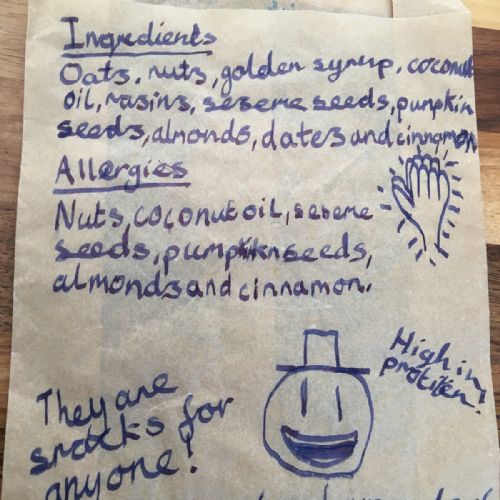 Ingredients
Oats, nuts, golden syrup, coconut
oil, rasins, seseme seeds, pumpkin
seeds, almonds, dates and cinnamon
Allergies
Nuts, coconut oil, seseme
seeds, pumpkin seeds,
almonds and cinnamon.
High in
protiten.
They are
snacks for
anyone!